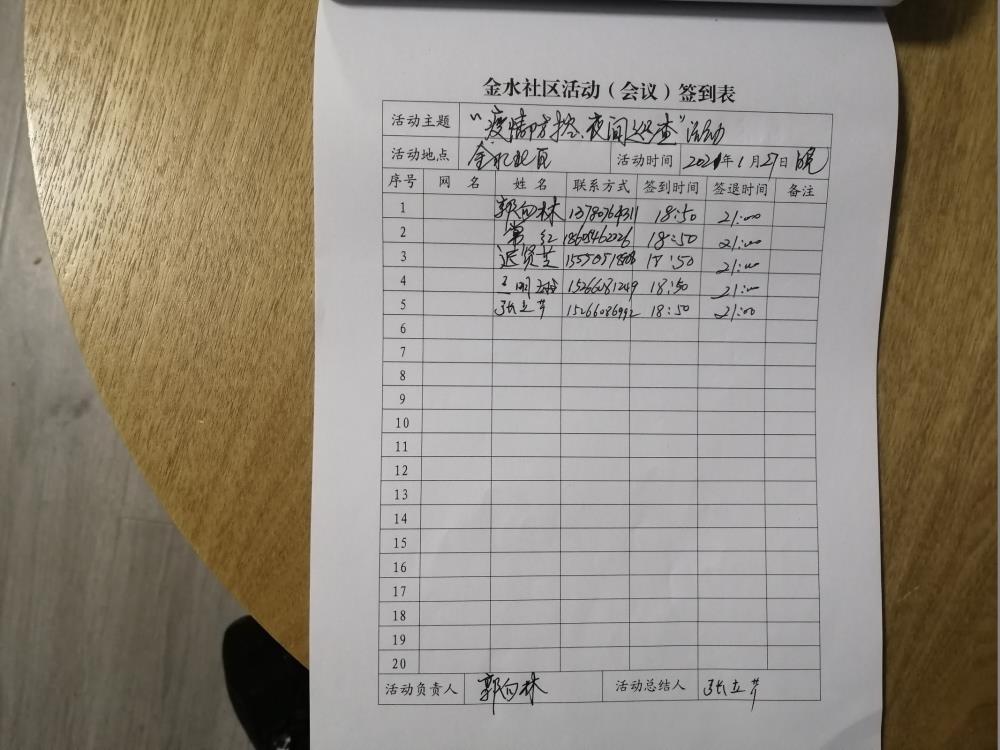 金水社区活动（会议）签到表
活动主题 “疫情防控、夜间巡查”活动
活动地点 金水社区 活动时间 2021年1月27日 晚
序号 网 名 姓 名 联系方式 签到时间 签退时间 备注
1 郭向林 13780764311 18:50 21:00
2 常红 18605462026 18:50 21:00
3 贤芝 18:50 21:00
4 王明 15266081249 18:50 21:00
5 张立芹 15266086992 18:50 21:00
6
7
8
9
10
11
12
13
14
15
16
17
18
19
20
活动负责人 郭向林 活动总结人 张立芹